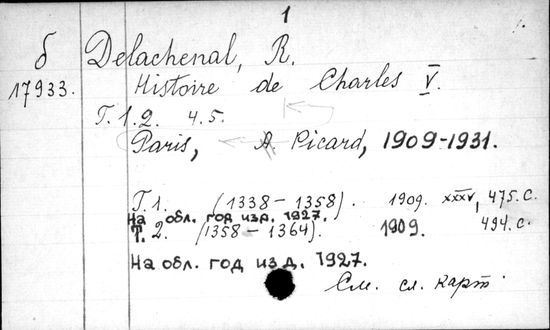 1
б Delachenal, R.
17933. Histoire de Charles V.
Т. 1. 2. 4. 5.
Paris, A. Picard, 1909-1931.
Т. 1. (1338-1358). 1909. XXXV, 475. с.
На обл. год изд. 1927.
Т. 2. (1358-1364). 1909. 494. с.
На обл. год изд. 1927.
См. сл. карт.